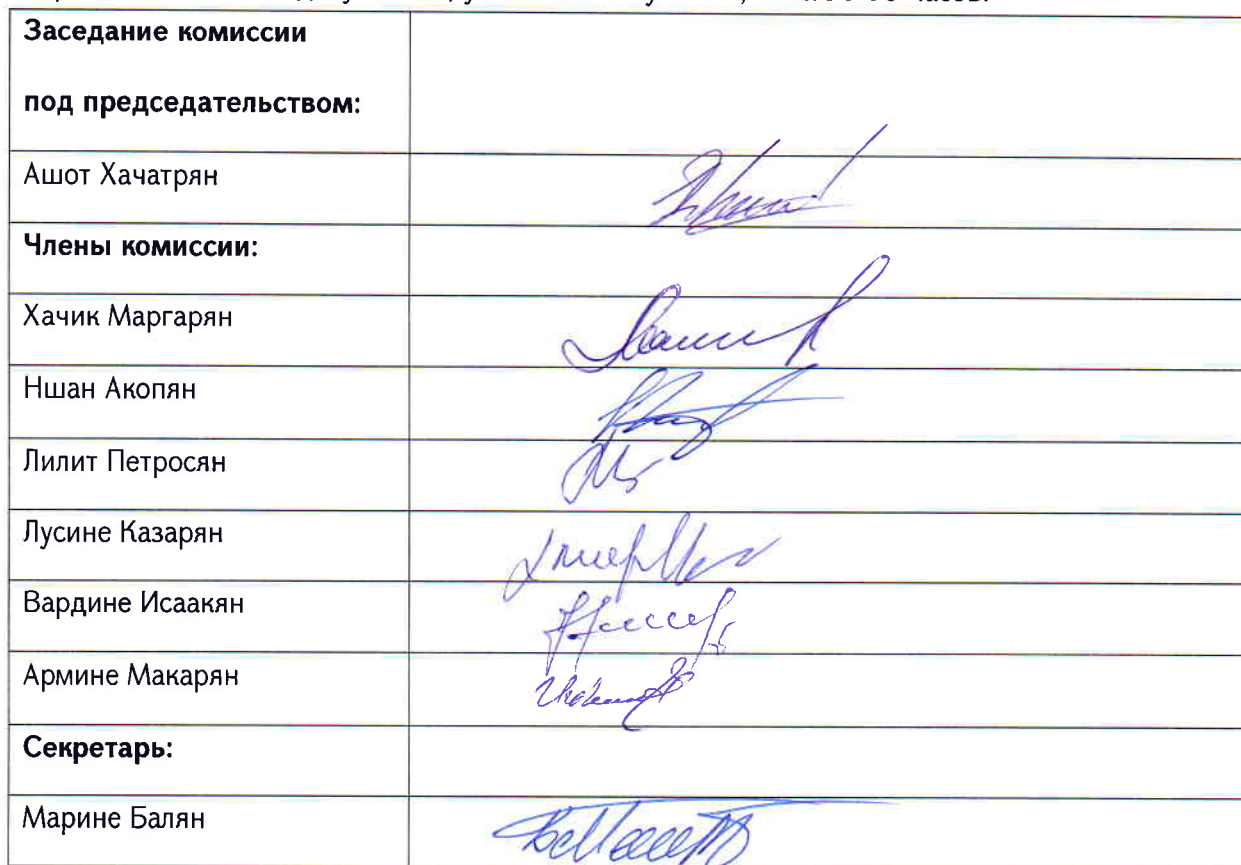 Заседание комиссии
под председательством:
Ашот Хачатрян
Члены комиссии:
Хачик Маргарян
Ншан Акопян
Лилит Петросян
Лусине Казарян
Вардине Исаакян
Армине Макарян
Секретарь:
Марине Балян